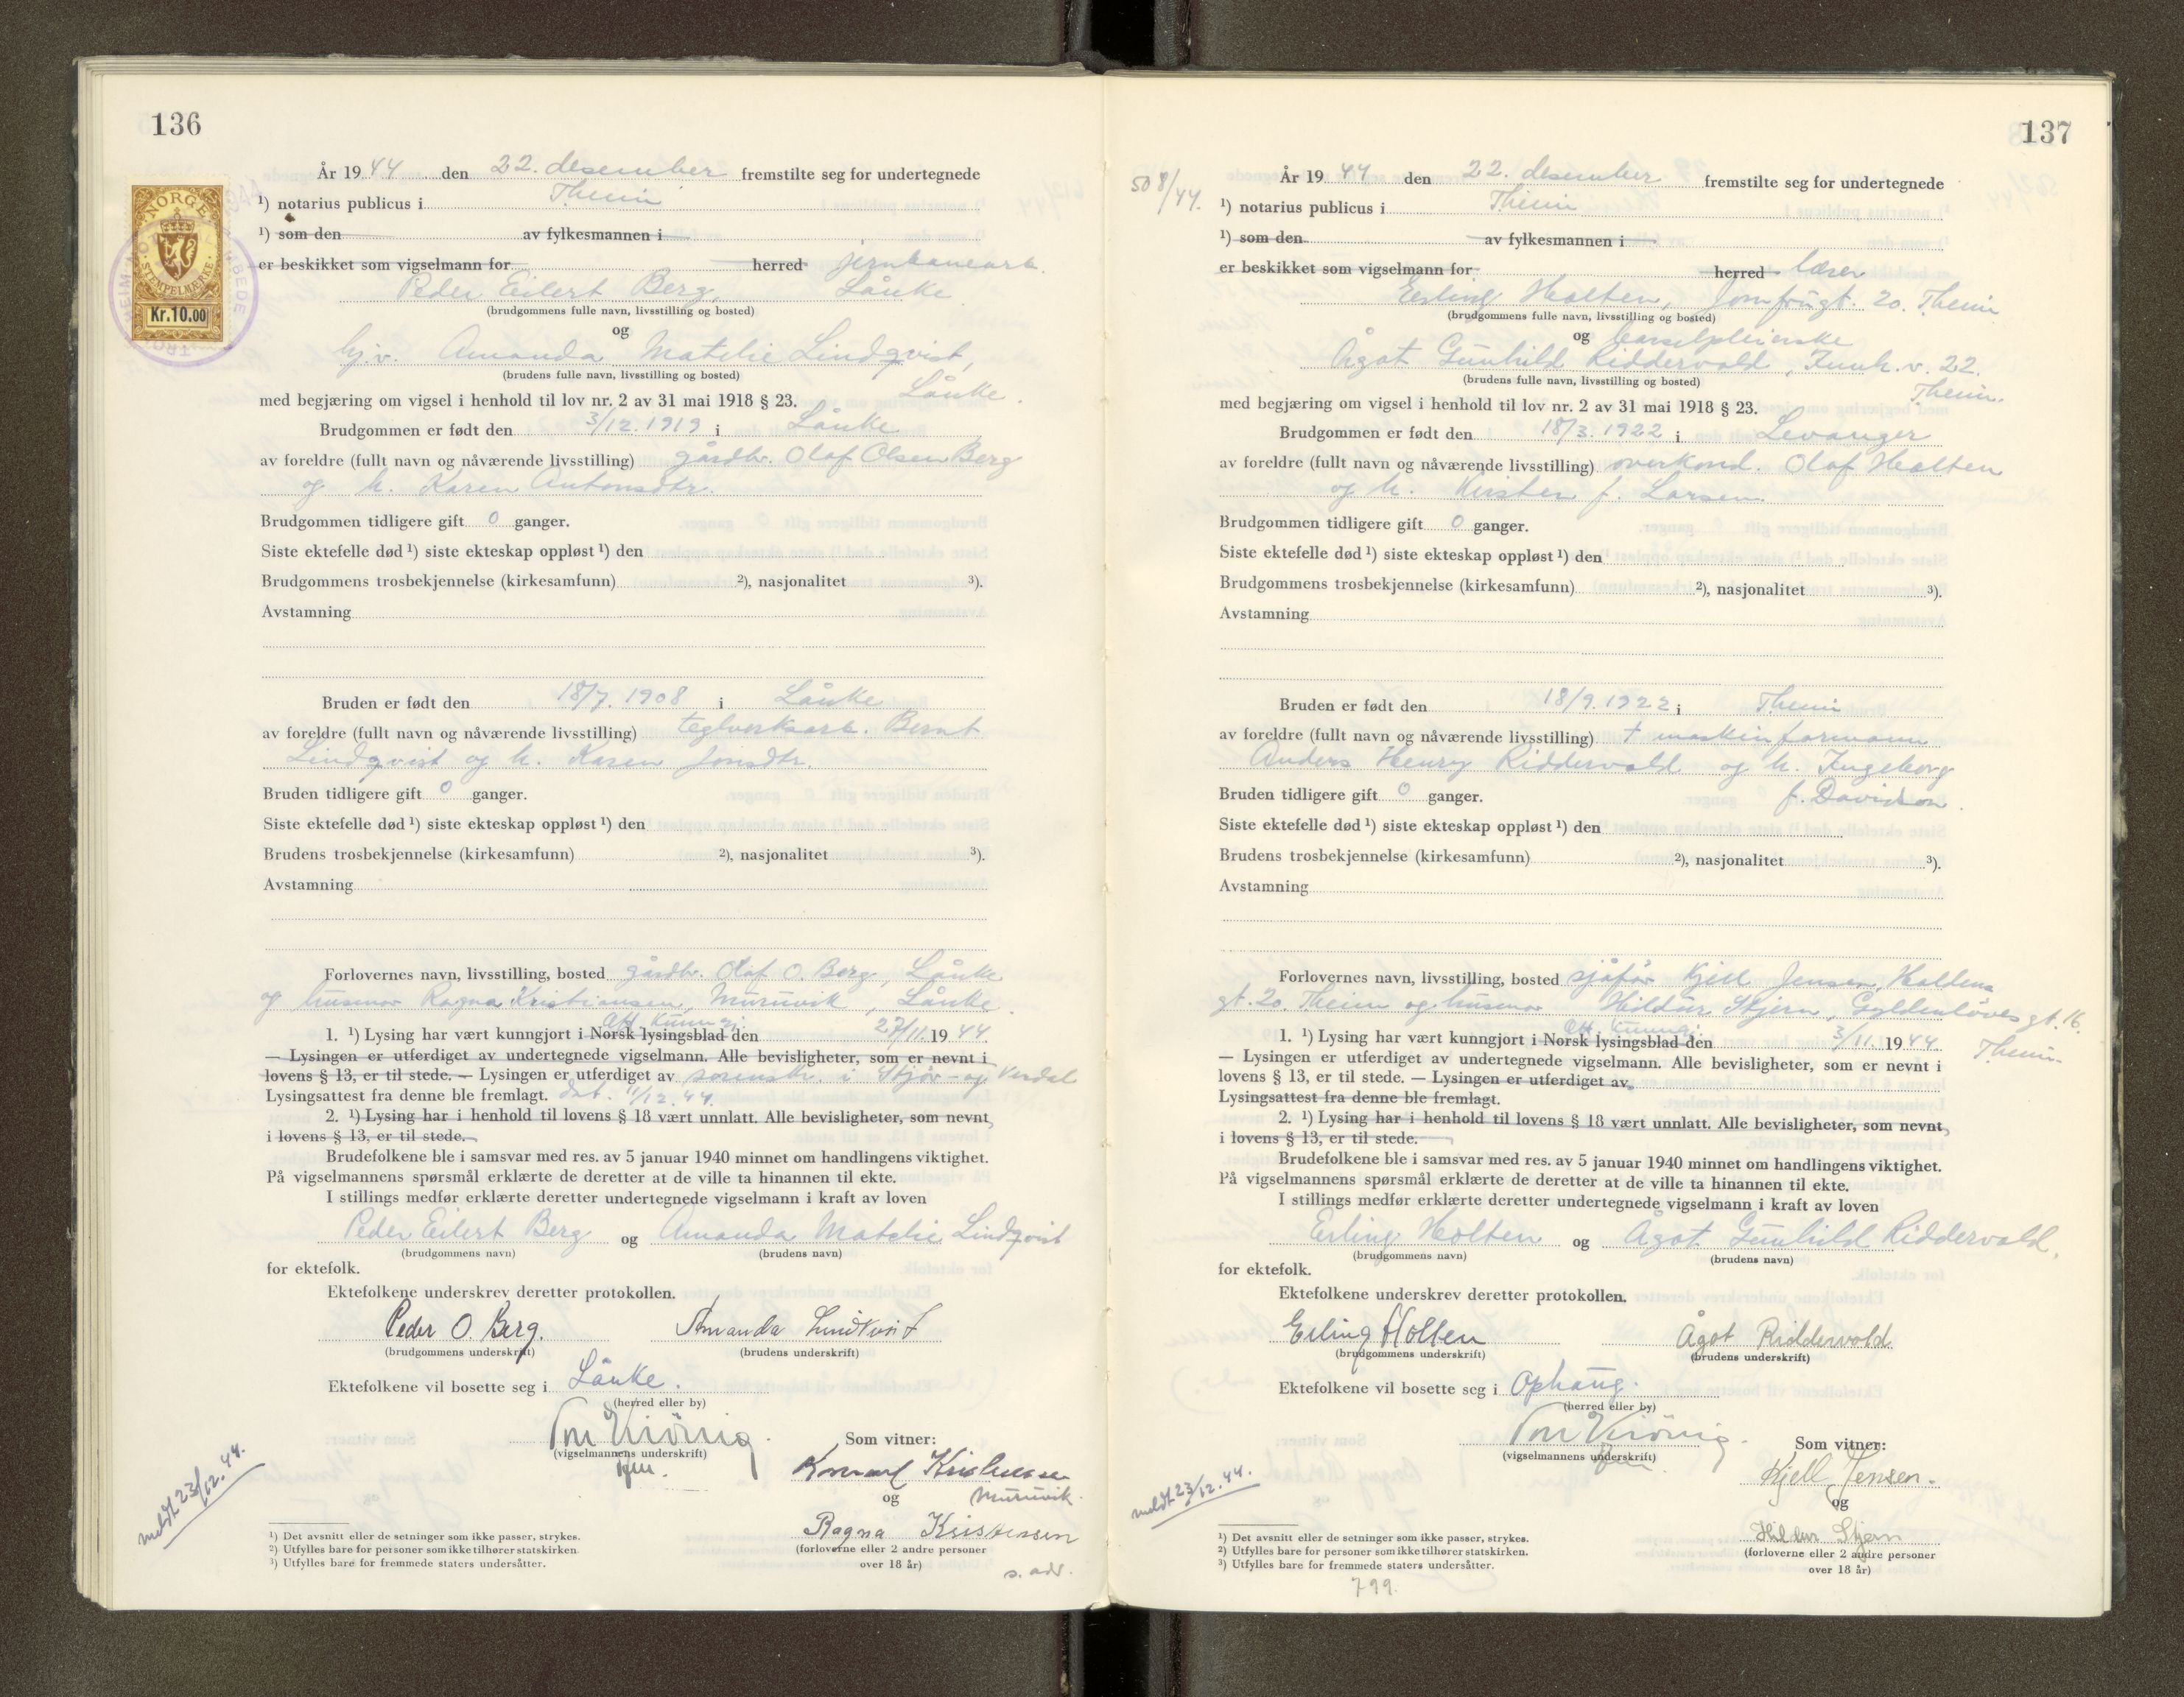 136
År 1944 den 22. desember fremstilte seg for undertegnede
¹) notarius publicus i Theim
¹) som den av fylkesmannen i
er beskikket som vigselmann for herred jernbanearb.
Peder Eilert Berg, Lånke
(brudgommens fulle navn, livsstilling og bosted)
og
hj.v. Amanda Matelie Lindqvist,
(brudens fulle navn, livsstilling og bosted)
Lånke.
med begjæring om vigsel i henhold til lov nr. 2 av 31 mai 1918 § 23.
Brudgommen er født den 3/12. 1919 i Lånke
av foreldre (fullt navn og nåværende livsstilling) gårdbr. Olaf Olsen Berg
og h. Karen Antonsdtr.
Brudgommen tidligere gift 0 ganger.
Siste ektefelle død ¹) siste ekteskap oppløst ¹) den
Brudgommens trosbekjennelse (kirkesamfunn) ²), nasjonalitet ³).
Avstamning
Bruden er født den 18/7. 1908 i Lånke
av foreldre (fullt navn og nåværende livsstilling) teglverksarb. Bernt
Lindqvist og h. Karen Jonsdtr.
Bruden tidligere gift 0 ganger.
Siste ektefelle død ¹) siste ekteskap oppløst ¹) den
Brudens trosbekjennelse (kirkesamfunn) ²), nasjonalitet ³).
Avstamning
Forlovernes navn, livsstilling, bosted gårdbr. Olaf O. Berg, Lånke
og husmor Ragna Kristiansen, Muruvik, Lånke.
off. kunngj.
1. ¹) Lysing har vært kunngjort i Norsk lysingsblad den 27/11. 1944
— Lysingen er utferdiget av undertegnede vigselmann. Alle bevisligheter, som er nevnt i
lovens § 13, er til stede. — Lysingen er utferdiget av sorenskr. i Stjør- og Verdal
Lysingsattest fra denne ble fremlagt. dat. 11/12. 44.
2. ¹) Lysing har i henhold til lovens § 18 vært unnlatt. Alle bevisligheter, som nevnt
i lovens § 13, er til stede.
Brudefolkene ble i samsvar med res. av 5 januar 1940 minnet om handlingens viktighet.
På vigselmannens spørsmål erklærte de deretter at de ville ta hinannen til ekte.
I stillings medfør erklærte deretter undertegnede vigselmann i kraft av loven
Peder Eilert Berg og Amanda Matelie Lindqvist
(brudgommens navn) (brudens navn)
for ektefolk.
Ektefolkene underskrev deretter protokollen.
Peder O. Berg. Amanda Lindkvist
(brudgommens underskrift) (brudens underskrift)
Ektefolkene vil bosette seg i Lånke.
(herred eller by)
(vigselmannens underskrift)
Som vitner:
Konrad Kristensen
og Muruvik.
Ragna Kristensen
(forloverne eller 2 andre personer
over 18 år)
s. adr.
meldt 23/12. 44.
¹) Det avsnitt eller de setninger som ikke passer, strykes.
²) Utfylles bare for personer som ikke tilhører statskirken.
³) Utfylles bare for fremmede staters undersåtter.
NORGE
STEMPELMERKE
Kr.10.00
137
508/44.
År 1944 den 22. desember fremstilte seg for undertegnede
¹) notarius publicus i Theim
¹) som den av fylkesmannen i
er beskikket som vigselmann for herred lærer
Erling Holten, Jomfrugt. 20. Theim
(brudgommens fulle navn, livsstilling og bosted)
og barselpleierske
Ågot Gunhild Riddervold, Innh.v. 22.
(brudens fulle navn, livsstilling og bosted)
Theim.
med begjæring om vigsel i henhold til lov nr. 2 av 31 mai 1918 § 23.
Brudgommen er født den 18/3. 1922 i Levanger
av foreldre (fullt navn og nåværende livsstilling) overkond. Olaf Holten
og h. Kirsten f. Larsen.
Brudgommen tidligere gift 0 ganger.
Siste ektefelle død ¹) siste ekteskap oppløst ¹) den
Brudgommens trosbekjennelse (kirkesamfunn) ²), nasjonalitet ³).
Avstamning
Bruden er født den 18/9. 1922 i Theim
av foreldre (fullt navn og nåværende livsstilling) † maskinformann
Anders Henry Riddervold og h. Ingeborg
Bruden tidligere gift 0 ganger. f. Davidson.
Siste ektefelle død ¹) siste ekteskap oppløst ¹) den
Brudens trosbekjennelse (kirkesamfunn) ²), nasjonalitet ³).
Avstamning
Forlovernes navn, livsstilling, bosted sjåfør Kjell Jensen, Kollens
gt. 20. Theim og husmor Hildur Stjern, Gyldenløves gt. 16.
off. kunngj. Theim.
1. ¹) Lysing har vært kunngjort i Norsk lysingsblad den 3/11. 1944.
— Lysingen er utferdiget av undertegnede vigselmann. Alle bevisligheter, som er nevnt i
lovens § 13, er til stede. — Lysingen er utferdiget av
Lysingsattest fra denne ble fremlagt.
2. ¹) Lysing har i henhold til lovens § 18 vært unnlatt. Alle bevisligheter, som nevnt
i lovens § 13, er til stede.
Brudefolkene ble i samsvar med res. av 5 januar 1940 minnet om handlingens viktighet.
På vigselmannens spørsmål erklærte de deretter at de ville ta hinannen til ekte.
I stillings medfør erklærte deretter undertegnede vigselmann i kraft av loven
Erling Holten og Ågot Gunhild Riddervold.
(brudgommens navn) (brudens navn)
for ektefolk.
Ektefolkene underskrev deretter protokollen.
Erling Holten Ågot Riddervold
(brudgommens underskrift) (brudens underskrift)
Ektefolkene vil bosette seg i Ophaug.
(herred eller by)
(vigselmannens underskrift)
Som vitner:
Kjell Jensen.
og
Hildur Stjern
(forloverne eller 2 andre personer
over 18 år)
meldt 23/12. 44.
¹) Det avsnitt eller de setninger som ikke passer, strykes.
²) Utfylles bare for personer som ikke tilhører statskirken.
³) Utfylles bare for fremmede staters undersåtter.
799.